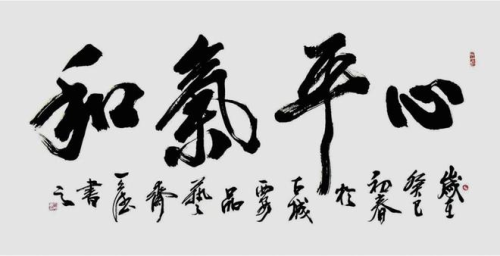 心平氣和
歲在
癸巳
初春
於
古城
西安
品
藝
齋
一滴
書
之